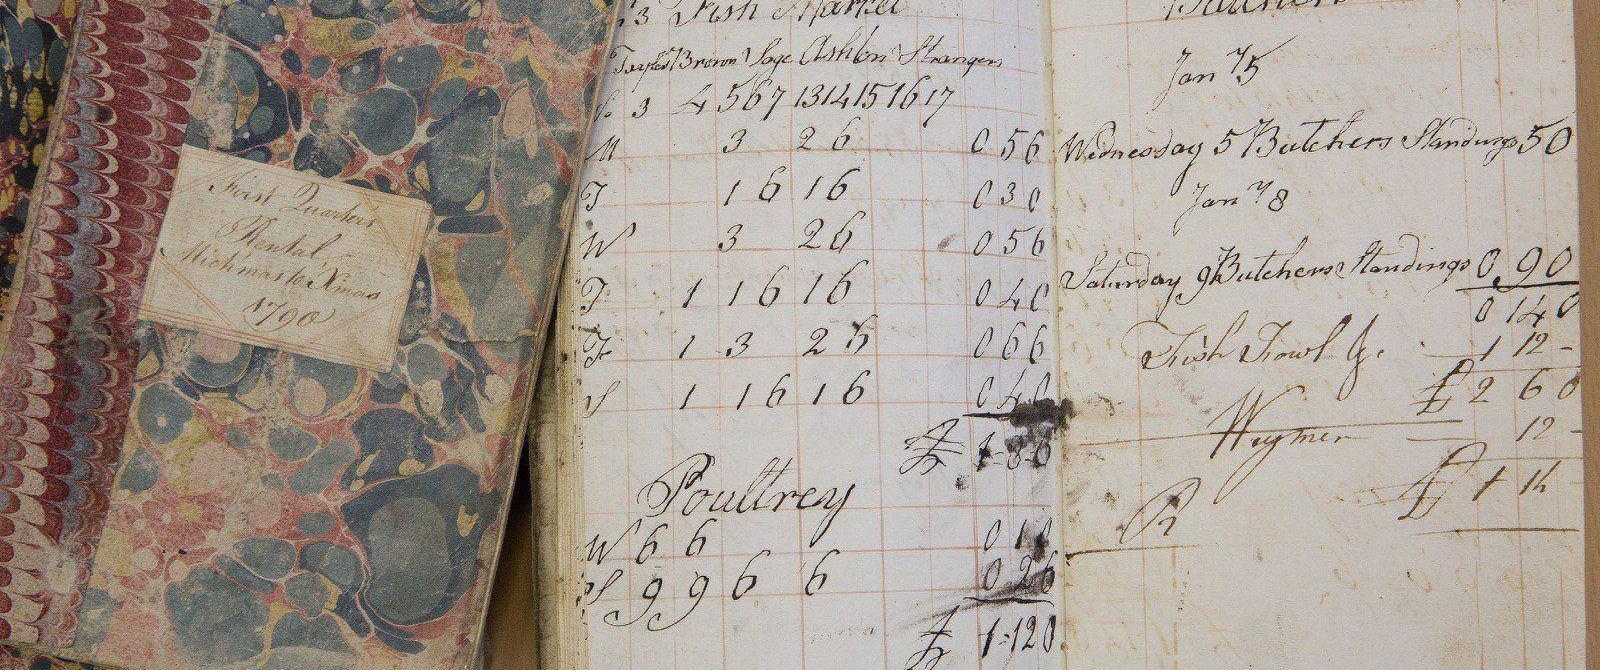 First Quarters
Rental
Mich'mas to Xmas
1790
3 Fish Market
Brown Sage Ashton Strangers
3 4 5 6 7 13 14 15 16 17
M 3 2 6 0 5 6
T 1 6 1 6 0 3 0
W 3 2 6 0 5 6
T 1 1 6 1 6 0 4 0
F 1 3 2 6 0 6 6
S 1 1 6 1 6 0 4 0
£ 1-8-6
Poultrey
W 6 6 0 1 0
S 9 9 6 6 0 2 6
£ 1-12 0
Butchers
Jan ry 5
Wednesday 5 Butchers Standings 5 0
Jan ry 8
Saturday 9 Butchers Standings 0 9 0
0 14 0
Fish Fowl &. 1 12 -
£ 2 6 0
Waymen 12 -
£ 1 14